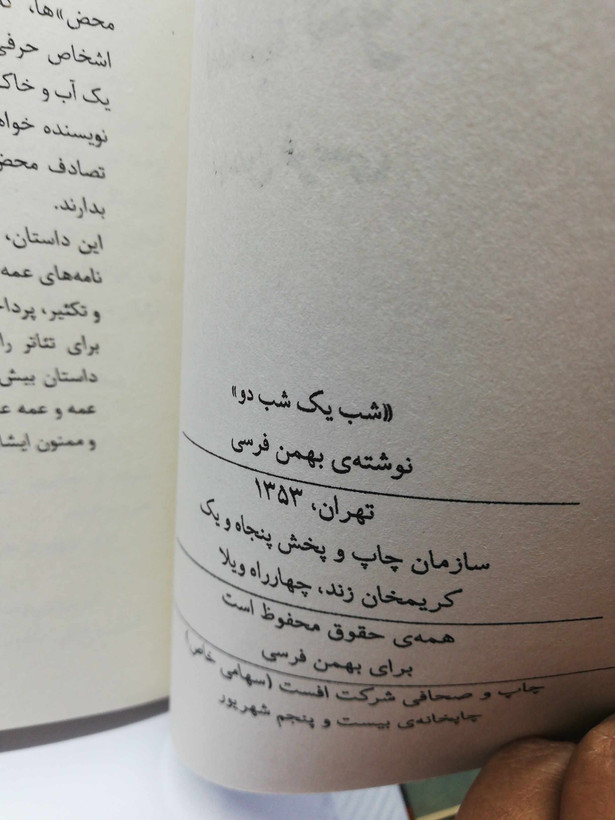 «شب یک شب دو»
نوشته‌ی بهمن فرسی
تهران، ۱۳۵۳
سازمان چاپ و پخش پنجاه و یک
کریمخان زند، چهارراه ویلا
همه‌ی حقوق محفوظ است
برای بهمن فرسی
چاپ و صحافی شرکت افست (سهامی خاص)
چاپخانه‌ی بیست و پنجم شهریور
محض»ها،
اشخاص حرفی
یک آب و خاک
نویسنده
تصادف محض
بدارند.
این داستان،
نامه‌های عمه
و تکثیر،
برای تئاتر را
داستان بیش
عمه و عمه
و ممنون